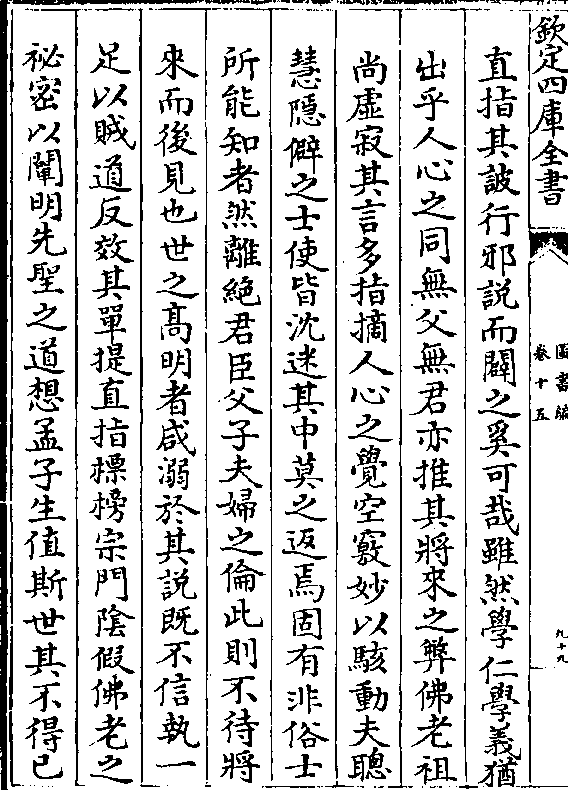 欽定四庫全書
圖書編
卷十五
九十九
直指其詖行邪説而闢之奚可哉雖然學仁學義猶
出乎人心之同無父無君亦推其將來之弊佛老祖
尚虚寂其言多指摘人心之覺空竅妙以駭動夫聰
慧隱僻之士使皆沈迷其中莫之返焉固有非俗士
所能知者然離絶君臣父子夫婦之倫此則不待將
來而後見也世之髙明者咸溺於其説既不信執一
足以賊道反效其單提直指標榜宗門陰假佛老之
祕密以闡明先聖之道想孟子生值斯世其不得已